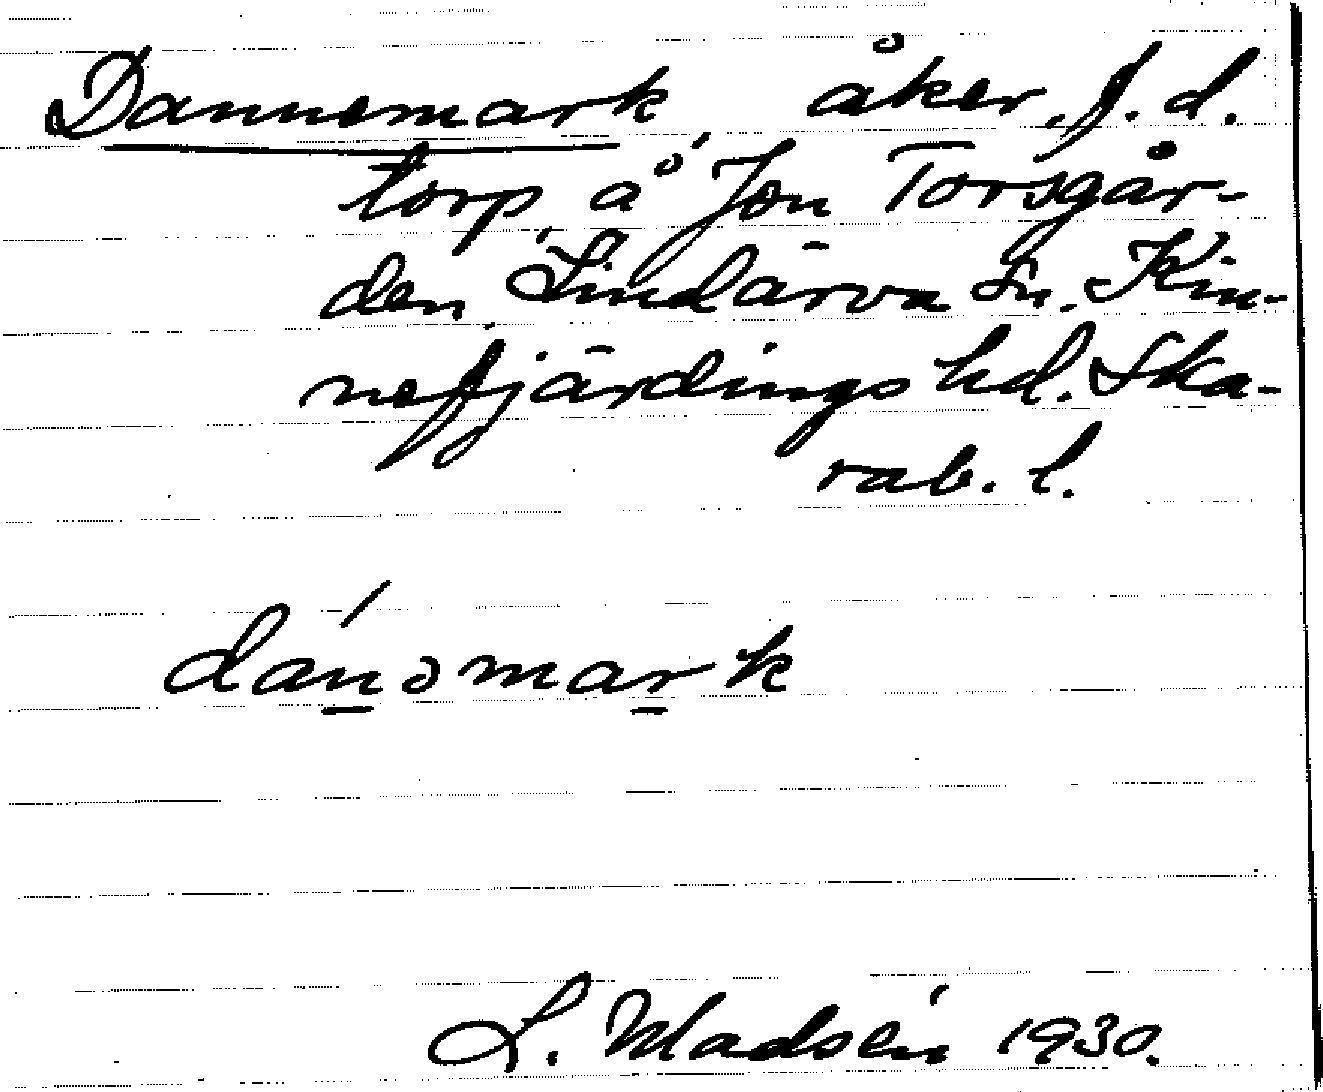 Dannemark, åker, f.d.
torp, å Jon Torsgår-
den, Lindärva sn. Kin-
nefjärdings hd. Ska-
rab. l.
dánəmark
L. Madsén 1930.